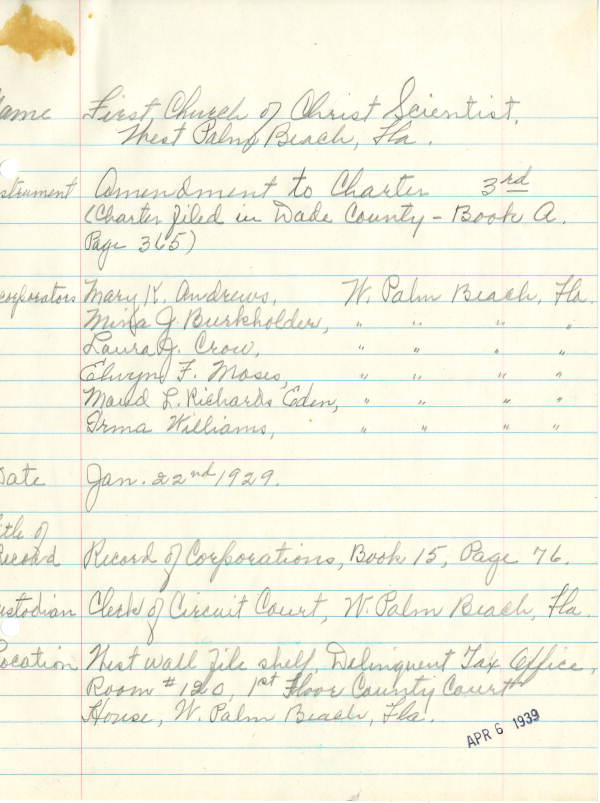 ame First Church of Christ Scientist,
West Palm Beach, Fla.
strument Amendment to Charter 3rd
(Charter filed in Dade County - Book A.
Page 365)
corporators Mary K. Andrews, W. Palm Beach, Fla.
J. Burkholder, " " " "
Laura J. Crow, " " " "
Elwyn F. Moses, " " " "
Maud L. Richards Eden, " " " "
Irma Williams, " " " "
Date Jan. 22nd 1929.
itle of
Record Record of Corporations, Book 15, Page 76.
ustodian Clerk of Circuit Court, W. Palm Beach, Fla.
Location West wall file shelf, Delinquent Tax Office,
Room #120, 1st Floor County Court
House, W. Palm Beach, Fla.
APR 6 1939